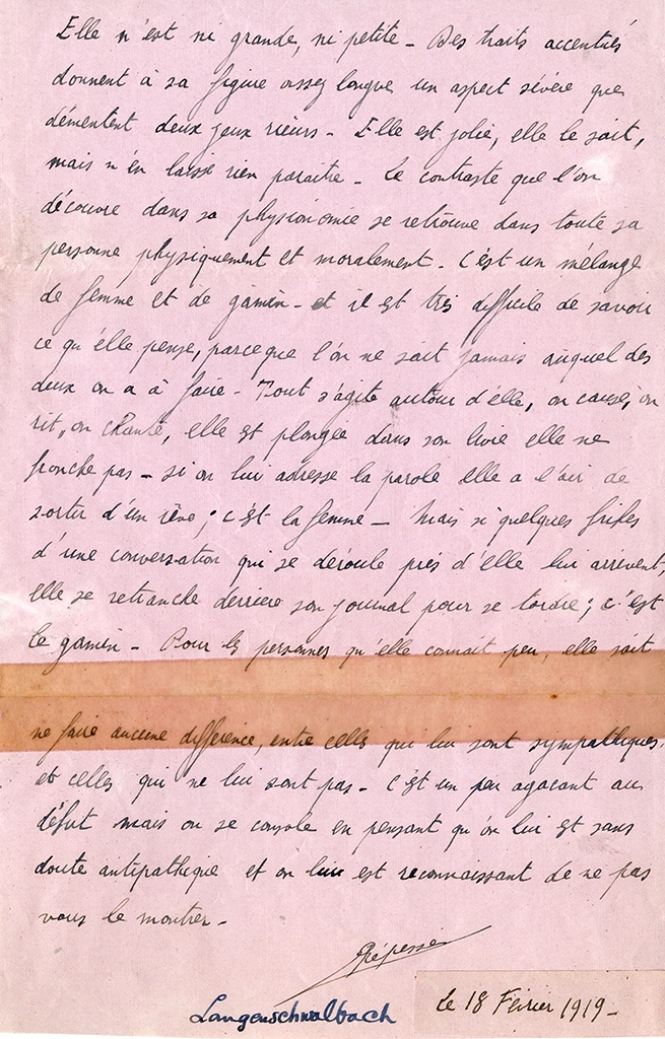 Elle n'est ni grande, ni petite - Des traits accentués
donnent à sa figure assez longue un aspect sévère que
démentent deux yeux rieurs - Elle est jolie, elle le sait,
mais n'en laisse rien paraître - Le contraste que l'on
découvre dans sa physionomie se retrouve dans toute sa
personne physiquement et moralement - C'est un mélange
de femme et de gamin - et il est très difficile de savoir
ce qu'elle pense, parce que l'on ne sait jamais auquel des
deux on a à faire - Tout s'agite autour d'elle, on cause, on
rit, on chante, elle est plongée dans son livre elle ne
bronche pas - si on lui adresse la parole elle a l'air de
sortir d'un rêve ; c'est la femme - Mais si quelques bribes
d'une conversation qui se déroule près d'elle lui arrivent,
elle se retranche derrière son journal pour se tordre ; c'est
le gamin - Pour les personnes qu'elle connait peu, elle sait
ne faire aucune différence, entre celles qui lui sont sympathiques,
et celles qui ne lui sont pas - C'est un peu agaçant au
début mais on se console en pensant qu'on lui est sans
doute antipathique et on lui est reconnaissant de ne pas
vous le montrer -
Langenschwalbach le 18 Février 1919 -